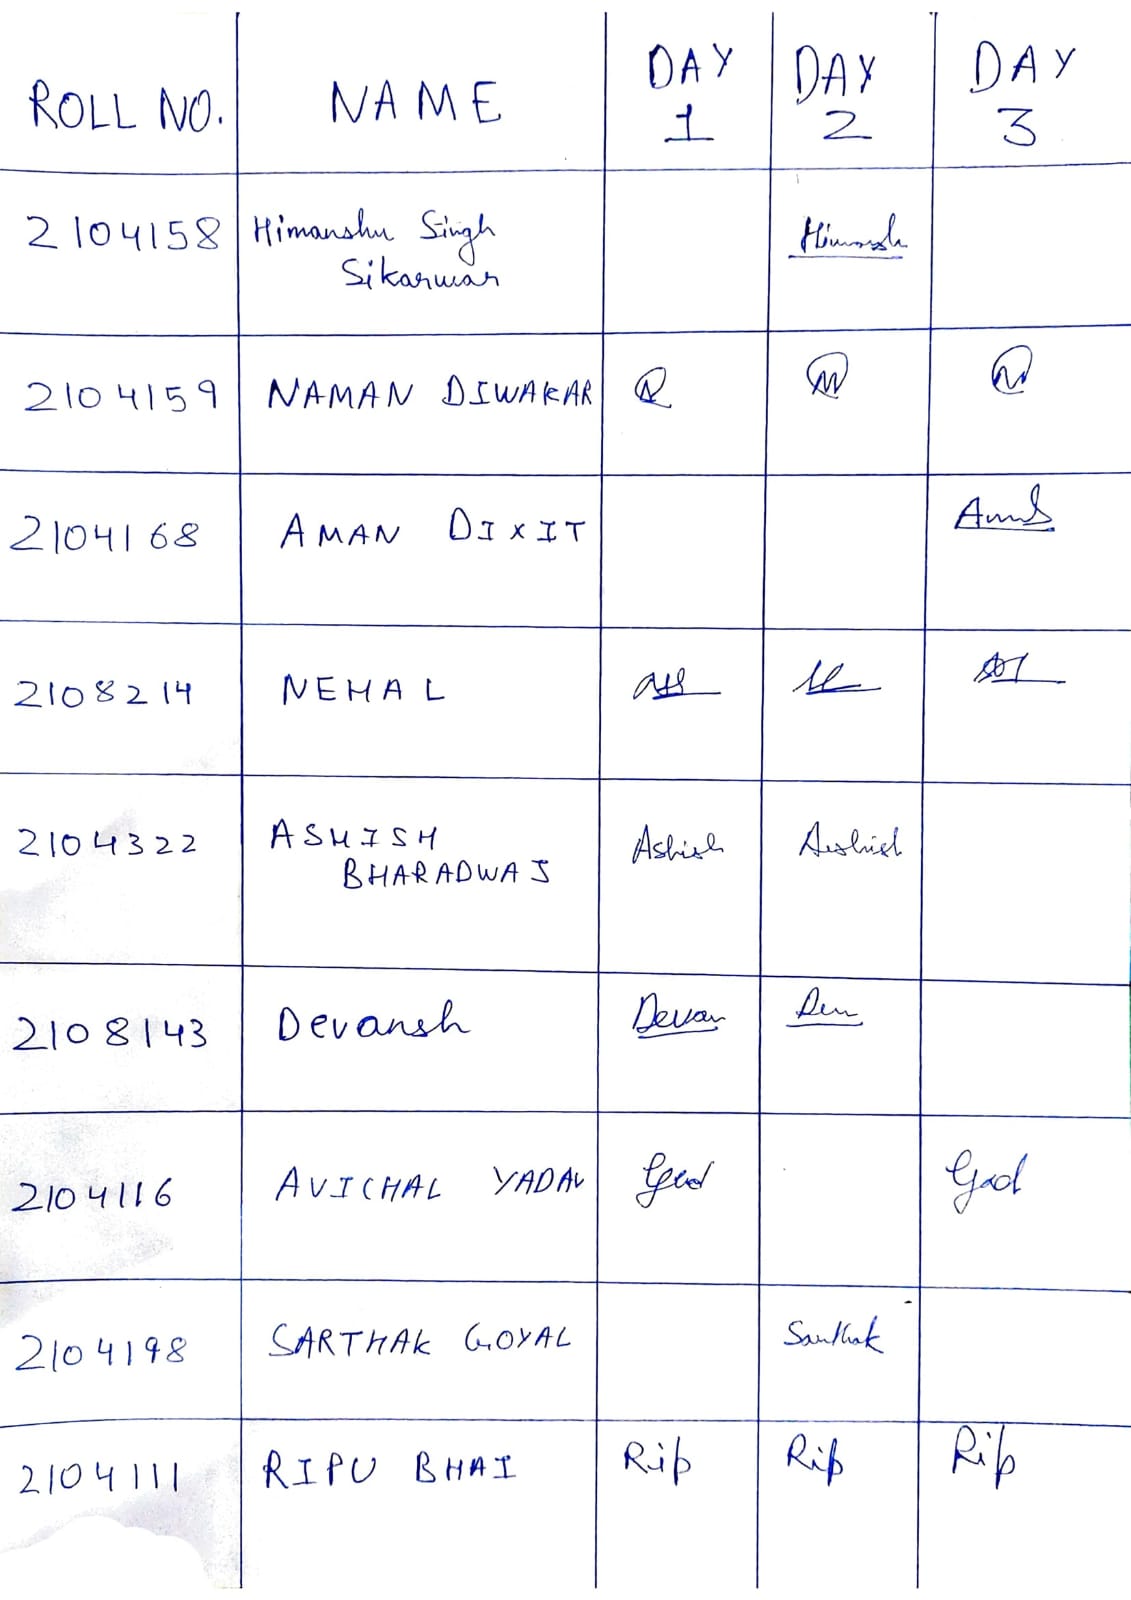 ROLL NO. NAME DAY 1 DAY 2 DAY 3
2104158 Himanshu Singh Sikarwar Himansh
2104159 NAMAN DIWAKAR
2104168 AMAN DIXIT
2108214 NEHAL
2104322 ASHISH BHARADWAJ Ashish Ashish
2108143 Devansh Devan Dev
2104116 AVICHAL YADAV
2104198 SARTHAK GOYAL Sarthak
2104111 RIPU BHAI Rip Rip Rip